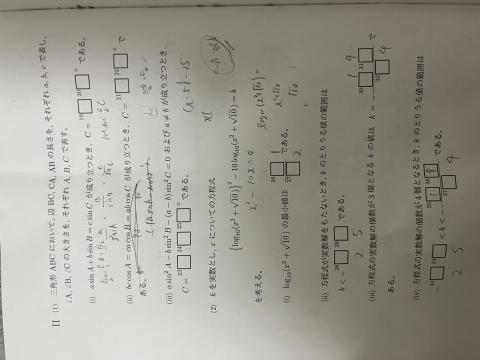 II (1) 三角形 ABC において, 辺 BC, CA, AB の長さを, それぞれ a, b, c で表し,
∠A, ∠B, ∠C の大きさを, それぞれ A, B, C で表す。
(i) a sin A + b sin B = c sin C が成り立つとき, C = 19□ 20□ ° である。
(ii) bc cos A = ca cos B = ab cos C が成り立つとき, C = 21□ 22□ ° で
ある。
(iii) a sin² A + b sin² B − (a + b) sin² C = 0 および a ≠ b が成り立つとき,
C = 23□ 24□ 25□ ° である。
(x − 5)² − 25
(2) k を実数とし, x についての方程式
{log₁₀(x² + √10)}² − 10 log₁₀(x² + √10) = k
を考える。
x² − 10x = a
(i) log₁₀(x² + √10) の最小値は 26□ 1 / 27□ 2 である。
(ii) 方程式が実数解をもたないとき, k のとりうる値の範囲は
k < − 28□ 29□ である。
2 5
(iii) 方程式の実数解の個数が 3 個となる k の値は k = − 30□ 31□ / 32□ で
1 9
4
ある。
(iv) 方程式の実数解の個数が 4 個となるとき, k のとりうる値の範囲は
− 33□ 34□ < k < − 35□ 36□ / 37□ である。
2 5 1 9 4